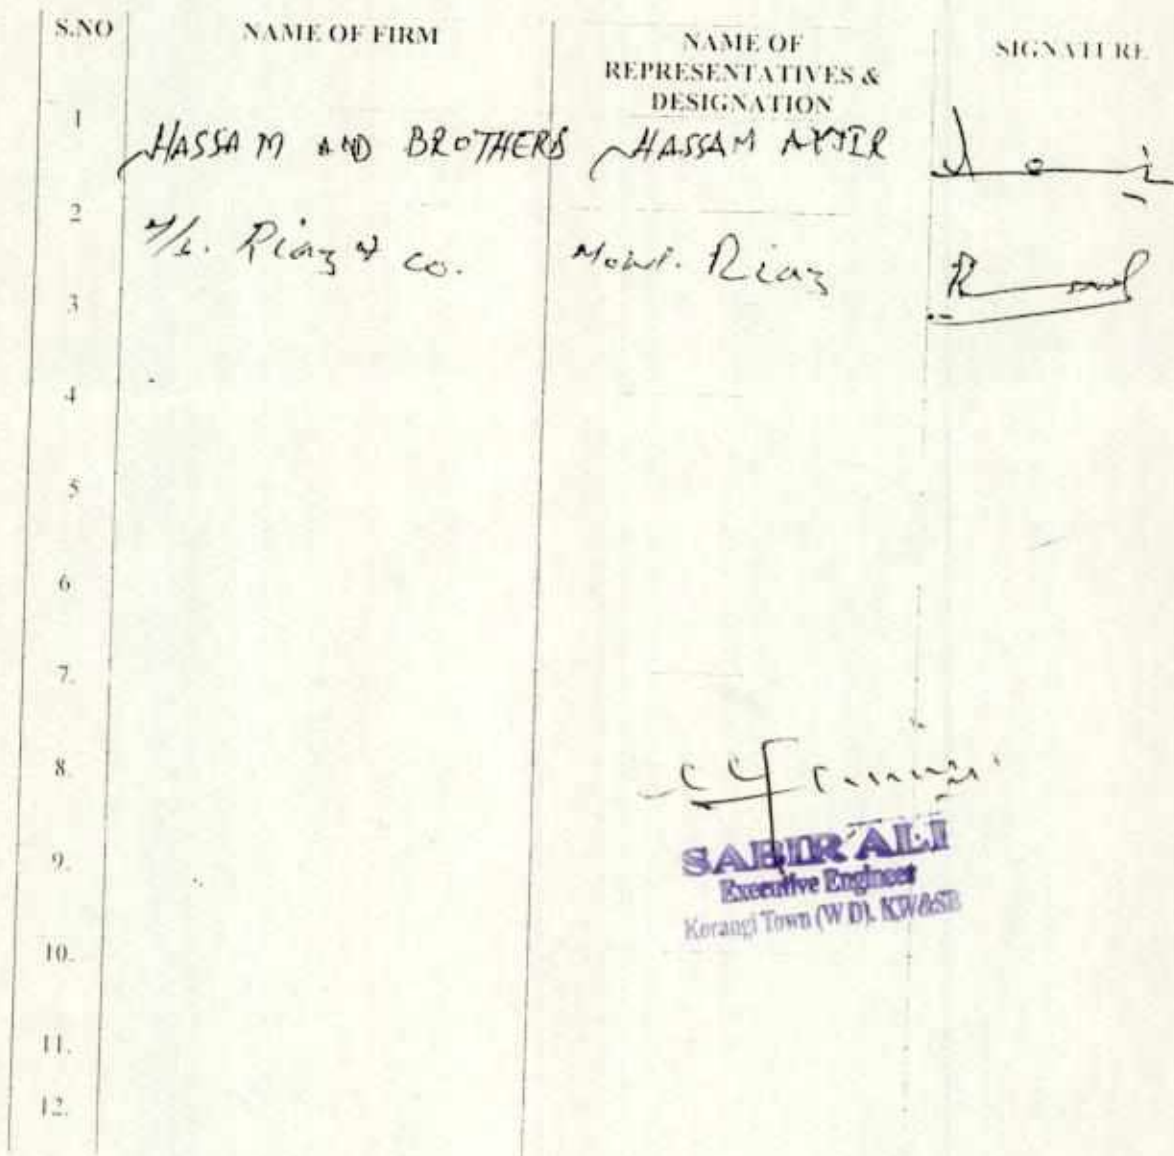 S.NO NAME OF FIRM NAME OF REPRESENTATIVES & DESIGNATION SIGNATURE
1 HASSAM AND BROTHERS HASSAM
2 M/s. Riaz & co. Riaz
3
4
5
6
7.
8.
9.
10.
11.
12.
SABIR ALI
Executive Engineer
Korangi Town (W D). KW&SB